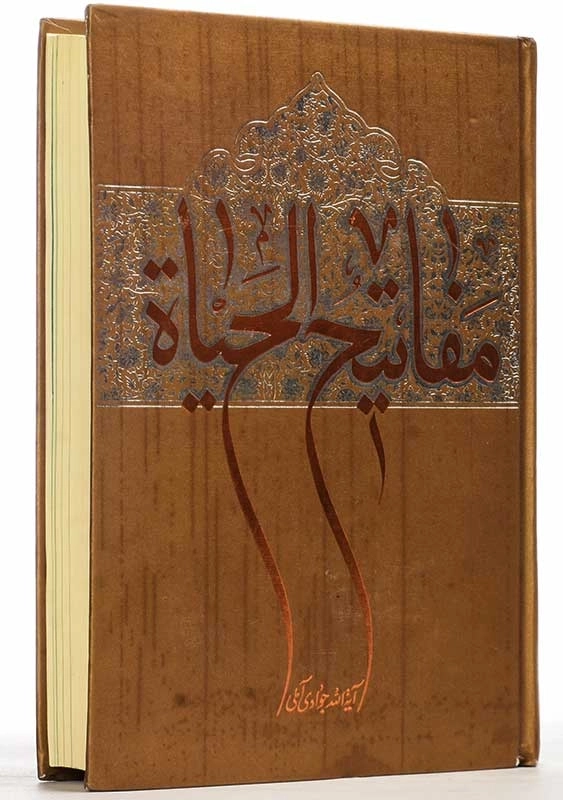 مفاتيح الحياة
آية الله جوادی آملی